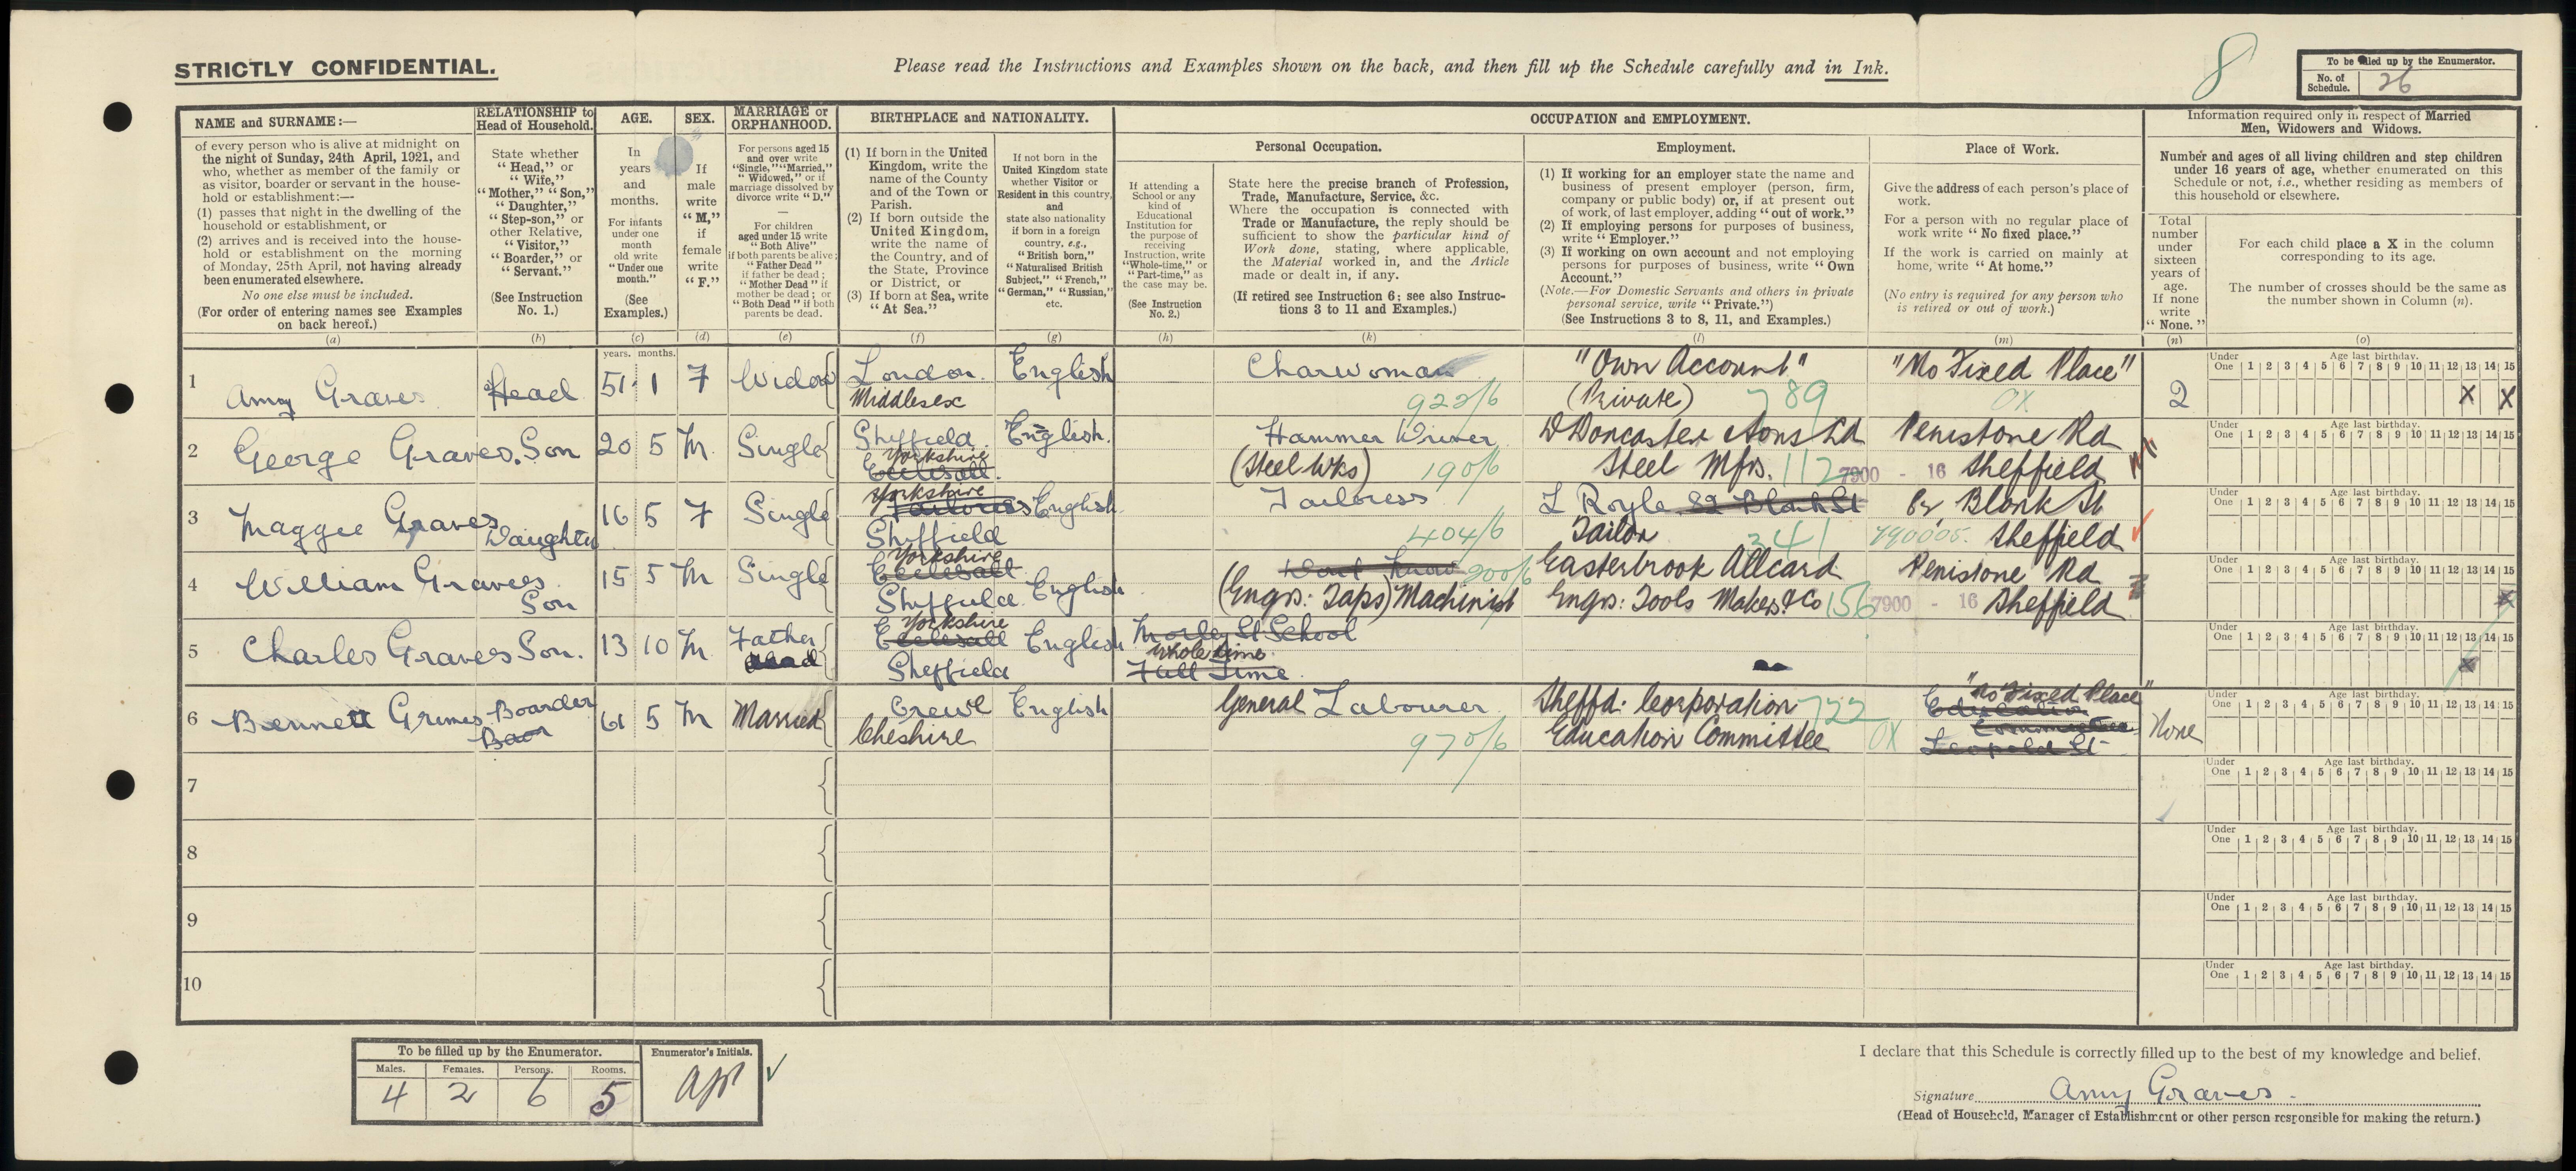 STRICTLY CONFIDENTIAL.
Please read the Instructions and Examples shown on the back, and then fill up the Schedule carefully and in Ink.
8
To be filled up by the Enumerator.
No. of Schedule. 26
NAME and SURNAME:—
of every person who is alive at midnight on
the night of Sunday, 24th April, 1921, and
who, whether as member of the family or
as visitor, boarder or servant in the house-
hold or establishment:—
(1) passes that night in the dwelling of the
household or establishment, or
(2) arrives and is received into the house-
hold or establishment on the morning
of Monday, 25th April, not having already
been enumerated elsewhere.
No one else must be included.
(For order of entering names see Examples
on back hereof.)
(a)
RELATIONSHIP to
Head of Household.
State whether
"Head," or
"Wife,"
"Mother," "Son,"
"Daughter,"
"Step-son," or
other Relative,
"Visitor,"
"Boarder," or
"Servant."
(See Instruction
No. 1.)
(b)
AGE.
In
years
and
months.
For infants
under one
month
old write
"Under one
month."
(See
Examples.)
(c)
years. months.
SEX.
If
male
write
"M,"
if
female
write
"F."
(d)
MARRIAGE or
ORPHANHOOD.
For persons aged 15
and over write
"Single," "Married,"
"Widowed," or if
marriage dissolved by
divorce write "D."
—
For children
aged under 15 write
"Both Alive"
if both parents be alive;
"Father Dead"
if father be dead;
"Mother Dead" if
mother be dead; or
"Both Dead" if both
parents be dead.
(e)
BIRTHPLACE and NATIONALITY.
(1) If born in the United
Kingdom, write the
name of the County
and of the Town or
Parish.
(2) If born outside the
United Kingdom,
write the name of
the Country, and of
the State, Province
or District, or
(3) If born at Sea, write
"At Sea."
(f)
If not born in the
United Kingdom state
whether Visitor or
Resident in this country,
and
state also nationality
if born in a foreign
country, e.g.,
"British born,"
"Naturalised British
Subject," "French,"
"German," "Russian,"
etc.
(g)
OCCUPATION and EMPLOYMENT.
Personal Occupation.
If attending a
School or any
kind of
Educational
Institution for
the purpose of
receiving
Instruction, write
"Whole-time," or
"Part-time," as
the case may be.
(See Instruction
No. 2.)
(h)
State here the precise branch of Profession,
Trade, Manufacture, Service, &c.
Where the occupation is connected with
Trade or Manufacture, the reply should be
sufficient to show the particular kind of
Work done, stating, where applicable,
the Material worked in, and the Article
made or dealt in, if any.
(If retired see Instruction 6; see also Instruc-
tions 3 to 11 and Examples.)
(k)
Employment.
(1) If working for an employer state the name and
business of present employer (person, firm,
company or public body) or, if at present out
of work, of last employer, adding "out of work."
(2) If employing persons for purposes of business,
write "Employer."
(3) If working on own account and not employing
persons for purposes of business, write "Own
Account."
(Note.—For Domestic Servants and others in private
personal service, write "Private.")
(See Instructions 3 to 8, 11, and Examples.)
(l)
Place of Work.
Give the address of each person's place of
work.
For a person with no regular place of
work write "No fixed place."
If the work is carried on mainly at
home, write "At home."
(No entry is required for any person who
is retired or out of work.)
(m)
Information required only in respect of Married
Men, Widowers and Widows.
Number and ages of all living children and step children
under 16 years of age, whether enumerated on this
Schedule or not, i.e., whether residing as members of
this household or elsewhere.
Total
number
under
sixteen
years of
age.
If none
write
"None."
(n)
For each child place a X in the column
corresponding to its age.
The number of crosses should be the same as
the number shown in Column (n).
(o)
Under One 1 2 3 4 5 6 7 8 9 10 11 12 13 14 15
Age last birthday.
1 Amy Graves Head 51 1 F Widow London English Charwoman "Own Account" "No Fixed Place" 2 X X
Middlesex 922/6 (Private) 789 OX
2 George Graves. Son 20 5 M. Single Sheffield English. Hammer Driver D Doncaster & Sons Ld Penistone Rd
Yorkshire Ecclesall (Steel Wks) 190/6 Steel Mfrs. 112 7900 - 16 Sheffield
3 Maggie Graves Daughter 16 5 F Single Yorkshire English Tailoress L Royle 82 Blonk St 82 Blonk St
Sheffield 404/6 Tailor 341 Sheffield
4 William Graves Son 15 5 M Single Yorkshire Ecclesall Dont Know 200/6 Easterbrook Allcard Penistone Rd
Sheffield English (Engrs: Taps) Machinist Engrs: Tools Makers & Co 156 7900 - 16 Sheffield X
5 Charles Graves Son. 13 10 M. Father dead Yorkshire Ecclesall English Morley St School
Sheffield Whole time
Full Time X
6 Bennett Grimes Boarder 61 5 M Married Crewe English General Labourer Sheffd: Corporation 722 "No Fixed Place" None
Boar Cheshire 970/6 Education Committee OX Education Committee
Leopold St
7
8
9
10
To be filled up by the Enumerator.
Males. Females. Persons. Rooms.
4 2 6 5
Enumerator's Initials.
I declare that this Schedule is correctly filled up to the best of my knowledge and belief.
Signature Amy Graves.
(Head of Household, Manager of Establishment or other person responsible for making the return.)